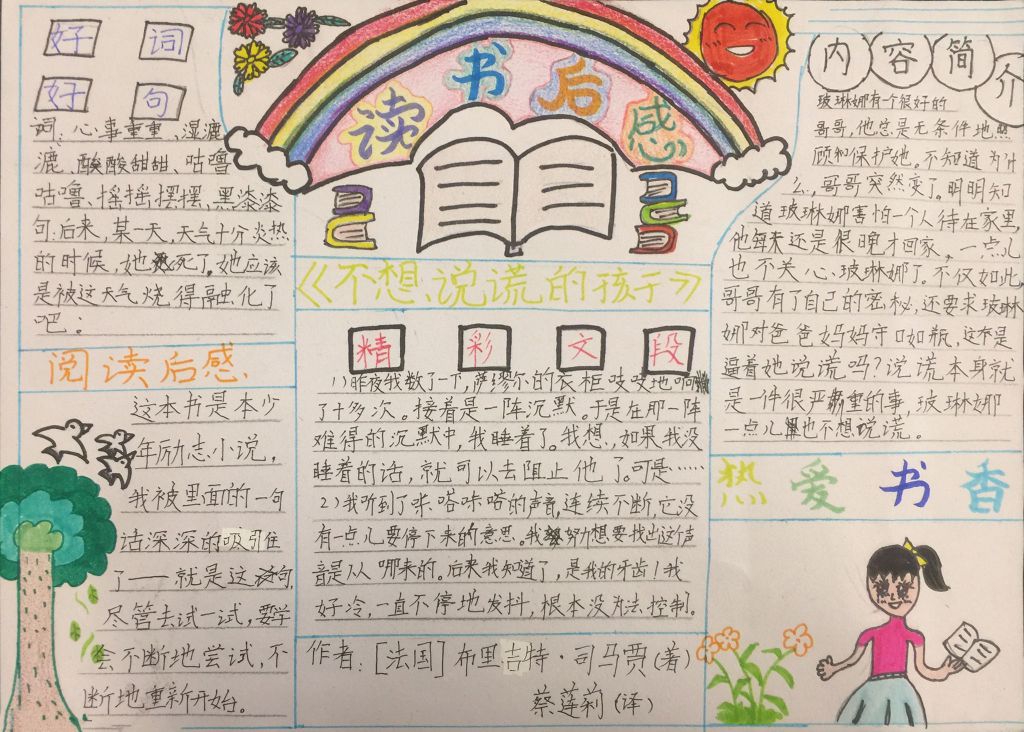 好 词
好 句
词：心事重重、湿漉
漉、酸酸甜甜、咕噜
咕噜、摇摇摆摆、黑漆漆
句：后来，某一天，天气十分炎热
的时候，她死了。她应该
是被这天气烧得融化了
吧！
阅读后感
这本书是本少
年励志小说，
我被里面的一句
话深深的吸引住
了——就是这句，
尽管去试一试，要学
会不断地尝试，不
断地重新开始。
读书后感
《不想说谎的孩子》
精彩文段
1）昨夜我数了一下，萨缪尔的衣柜吱吱地响
了十多次。接着是一阵沉默。于是在那一阵
难得的沉默中，我睡着了。我想，如果我没
睡着的话，就可以去阻止他了。可是……
2）我听到了咔嗒咔嗒的声音，连续不断，它没
有一点儿要停下来的意思。我努力想要找出这个声
音是从哪来的。后来我知道了，是我的牙齿！我
好冷，一直不停地发抖，根本没方法控制。
作者：［法国］布里吉特·司马贾（著）
蔡莲莉（译）
内容简介
玻琳娜有一个很好的
哥哥，他总是无条件地照
顾和保护她。不知道为什
么，哥哥突然变了。明明知
道玻琳娜害怕一个人待在家里，
他每天还是很晚才回家，一点儿
也不关心玻琳娜了。不仅如此，
哥哥有了自己的密秘，还要求玻琳
娜对爸爸妈妈守口如瓶，这不是
逼着她说谎吗？说谎本身就
是一件很严重的事，玻琳娜
一点儿也不想说谎。
热爱书香